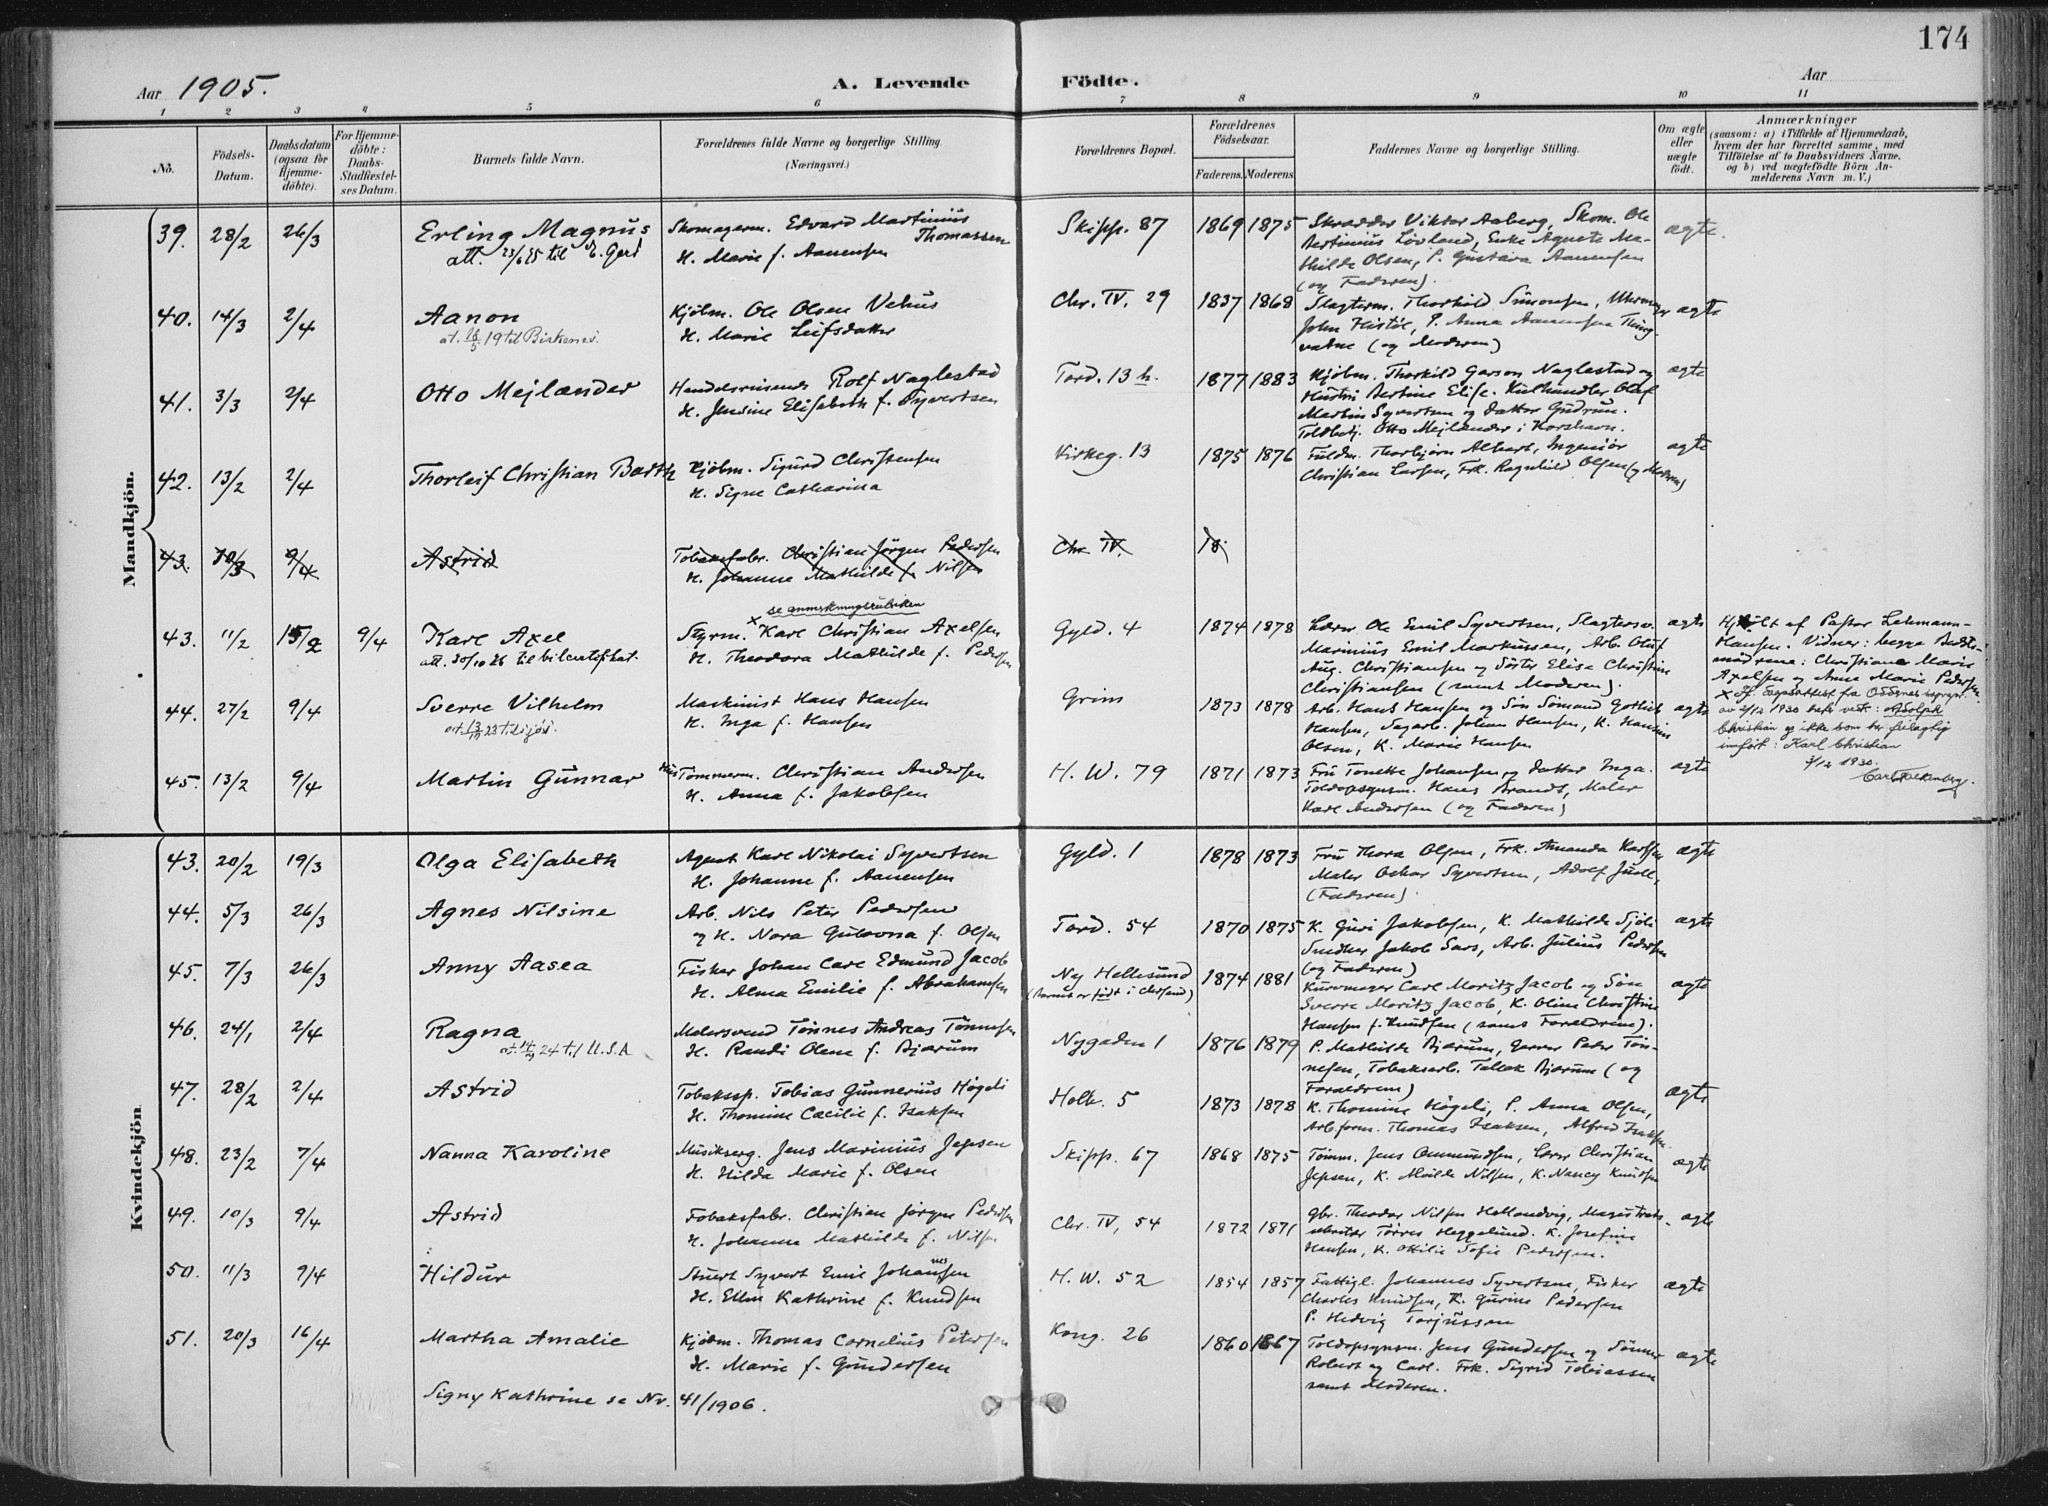 174
Aar 1905. A. Levende Födte. Aar
1 2 3 4 5 6 7 8 9 10 11
No. Födsels-Datum. Daabsdatum (ogsaa for Hjemme-döbte). For Hjemme-döbte: Daabs-Stadfæstel-ses Datum. Barnets fulde Navn. Forældrenes fulde Navne og borgerlige Stilling (Næringsvei.) Forældrenes Bopæl. Forældrenes Födselsaar. Faderens. Moderens. Faddernes Navne og borgerlige Stilling. Om ægte eller uægte födt. Anmærkninger (saasom: a) i Tilfælde af Hjemmedaab, hvem der har forrettet samme, med Tilföielse af to Daabsvidners Navne, og b) ved uægtefödte Börn An-melderens Navn m. V.)
Mandkjön.
39. 28/2 26/3 Erling Magnus Skomagerm. Edvard Martinius Thomassen Skipp. 87 1869 1875 Skrædder Viktor Aaberg, Skom. Ole ægte.
H. Marie f. Aanensen Bertinius Lövland, Enke Agnete Ma-
thilde Olsen, P. Gustava Aanensen
(og Faderen).
40. 14/3 2/4 Aanon Kjöbm. Ole Olsen Vehus Chr. IV. 29 1837 1868 Slagterm. Thorkild Simonsen, ægte
19 til Birkenes. H. Marie Leifsdatter John P. Anna Aanensen
(og Moderen)
41. 3/3 2/4 Otto Mejlænder Handelsreisende Rolf Naglestad Tord. 13 h. 1877 1883 Kjöbm. Thorkild Naglestad og ægte
H. Jensine Elisabeth f. Syvertsen Hustru Bertine Elise. Kulhandler Olaf
Martin Syvertsen og datter Gudrun.
Toldbetj. Otto Mejlænder i Korshavn.
42. 13/2 2/4 Thorleif Christian Barth Kjöbm. Sigurd Christensen Kirkeg. 13 1875 1876 Fuldm. Thorbjörn Albert, Ingeniör ægte
H. Signe Catharina Christian Larsen, Frk. Ragnhild Olsen (og Moderen)
43. 10/3 9/4 Astrid Tobaksfabr. Christian Jörgen Pedersen Chr IV. 18
H. Johanne Mathilde f. Nilsen
se anmerkningsrubriken
43. 11/2 15/2 9/4 Karl Axel Styrm. x Karl Christian Axelsen Gyld. 4 1874 1878 Lærer Ole Emil Syvertsen, Slagtersv. ægte Hjdöbt af Pastor Lehmann-
att. 30/10 26 til bilcertifikat. H. Theodora Mathilde f. Pedersen Marinius Emil Markussen, Arb. Oluf Hansen. Vidner: begge Bedste-
Aug. Christiansen og Söster Elise Christine mödrene: Christiane Marie
Christiansen (samt Moderen). Axelsen og Anna Marie Pedersen
44. 27/2 9/4 Sverre Vilhelm Maskinist Hans Hansen Grim 1873 1878 Arb. Hans Hansen og Sön Gotlieb ægte x
H. Inga f. Hansen Hansen, Sagarb. Johan Hansen, K. Hansine 1930 Adolph
Olsen, K. Marie Hansen Christian og ikke som her feilagtig
innfört: Karl Christian
1930.
45. 13/2 9/4 Martin Gunnar Tömmerm. Christian Andersen H. W. 79 1871 1873 Fru Tonette Johansen og datter Inga. ægte
H. Anna f. Jakobsen Toldopsynsm. Hans Brandt, Maler
Karl Andersen (og Faderen)
Kvindekjön.
43. 20/2 19/3 Olga Elisabeth Agent Karl Nikolai Syvertsen Gyld. 1 1878 1873 Fru Thora Olsen, Frk. Amanda Karlsen ægte
H. Johanne f. Aanensen Maler Oskar Syvertsen, Adolf Juell,
(Faderen).
44. 5/3 26/3 Agnes Nilsine Arb. Nils Peter Pedersen Tord. 54 1870 1875 K. Guri Jakobsen, K. Mathilde ægte
og H. Nora Gulovna f. Olsen Snedker Jakob Arb. Julius Pedersen
(og Faderen)
45. 7/3 26/3 Anny Aasea Fisker Johan Carl Edmund Jacob Ny Hellesund 1874 1881 Kurvmager Carl Moritz Jacob og Sön ægte
H. Alma Emilie f. Abrahamsen (Barnet er födt i ) Sverre Moritz Jacob, K. Oline Christine
Hansen f. Knudsen (samt Forældrene).
46. 24/1 2/4 Ragna Malersvend Tönnes Andreas Tönnesen Nygaden 1 1876 1879 P. Mathilde Bjærum, Garver Peder Tön-
24 til U.S.A H. Randi Olene f. Bjærum nesen, Tobaksarb. Tallak Bjærum (og
Forældrene)
47. 28/2 2/4 Astrid Tobakssp. Tobias Gunnerius Högeli Holb. 5 1873 1878 K. Thomine Högeli, P. Anna Olsen, ægte
H. Thomine Cæcilie f. Isaksen Arb.form. Thomas Isaksen, Alfred Isaksen.
48. 23/2 7/4 Nanna Karoline Musikserg. Jens Marinius Jepsen Skipp. 67 1868 1875 Tömm. Jens Ommundsen, Lærer Christian ægte
H. Hilda Marie f. Olsen Jepsen, K. Nilsen, K. Nancy Knudsen
49. 10/3 9/4 Astrid Tobaksfabr. Christian Jörgen Pedersen Chr. IV, 54 1872 1871 Gbr. Theodor Nilsen Hellandvig, Magistrats- ægte
H. Johanne Mathilde f. Nilsen Törres Heggelund. K. Josefine
Hansen, K. Ottilie Sofie Pedersen.
50. 11/3 9/4 Hildur Stuert Syvert Emil Johannesen H. W. 52 1854 1857 Fattigl. Johannes Syvertsen, Fisker ægte
H. Ellen Kathrine f. Knudsen Charles Knudsen, K. Gurine Pedersen
P. Hedvig Torjussen
51. 20/3 16/4 Martha Amalie Kjöbm. Thomas Cornelius Petersen Kong. 26 1860 1867 Toldopsynsm. Jens Gundersen og Sönner ægte
H. Marie f. Gundersen Robert og Carl. Frk. Sigrid Tobiassen
samt Moderen.
Signy Kathrine se Nr. 41/1906.